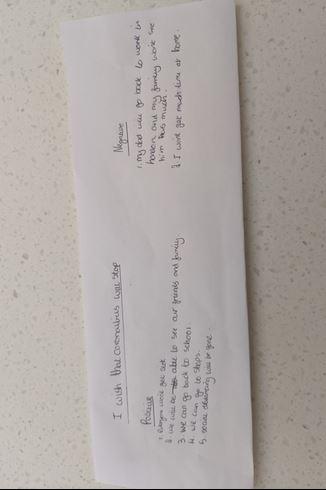 I wish that coronavirus will stop
Positive
1. Everyone wont get sick
2. we will be able to see our friends and family
3. we can go back to school
4. we can go to shops.
5. social distancing will be gone
Negative
1. my dad will go back to work in
london and my family wont see
him this much.
2. I wont get much time at home.